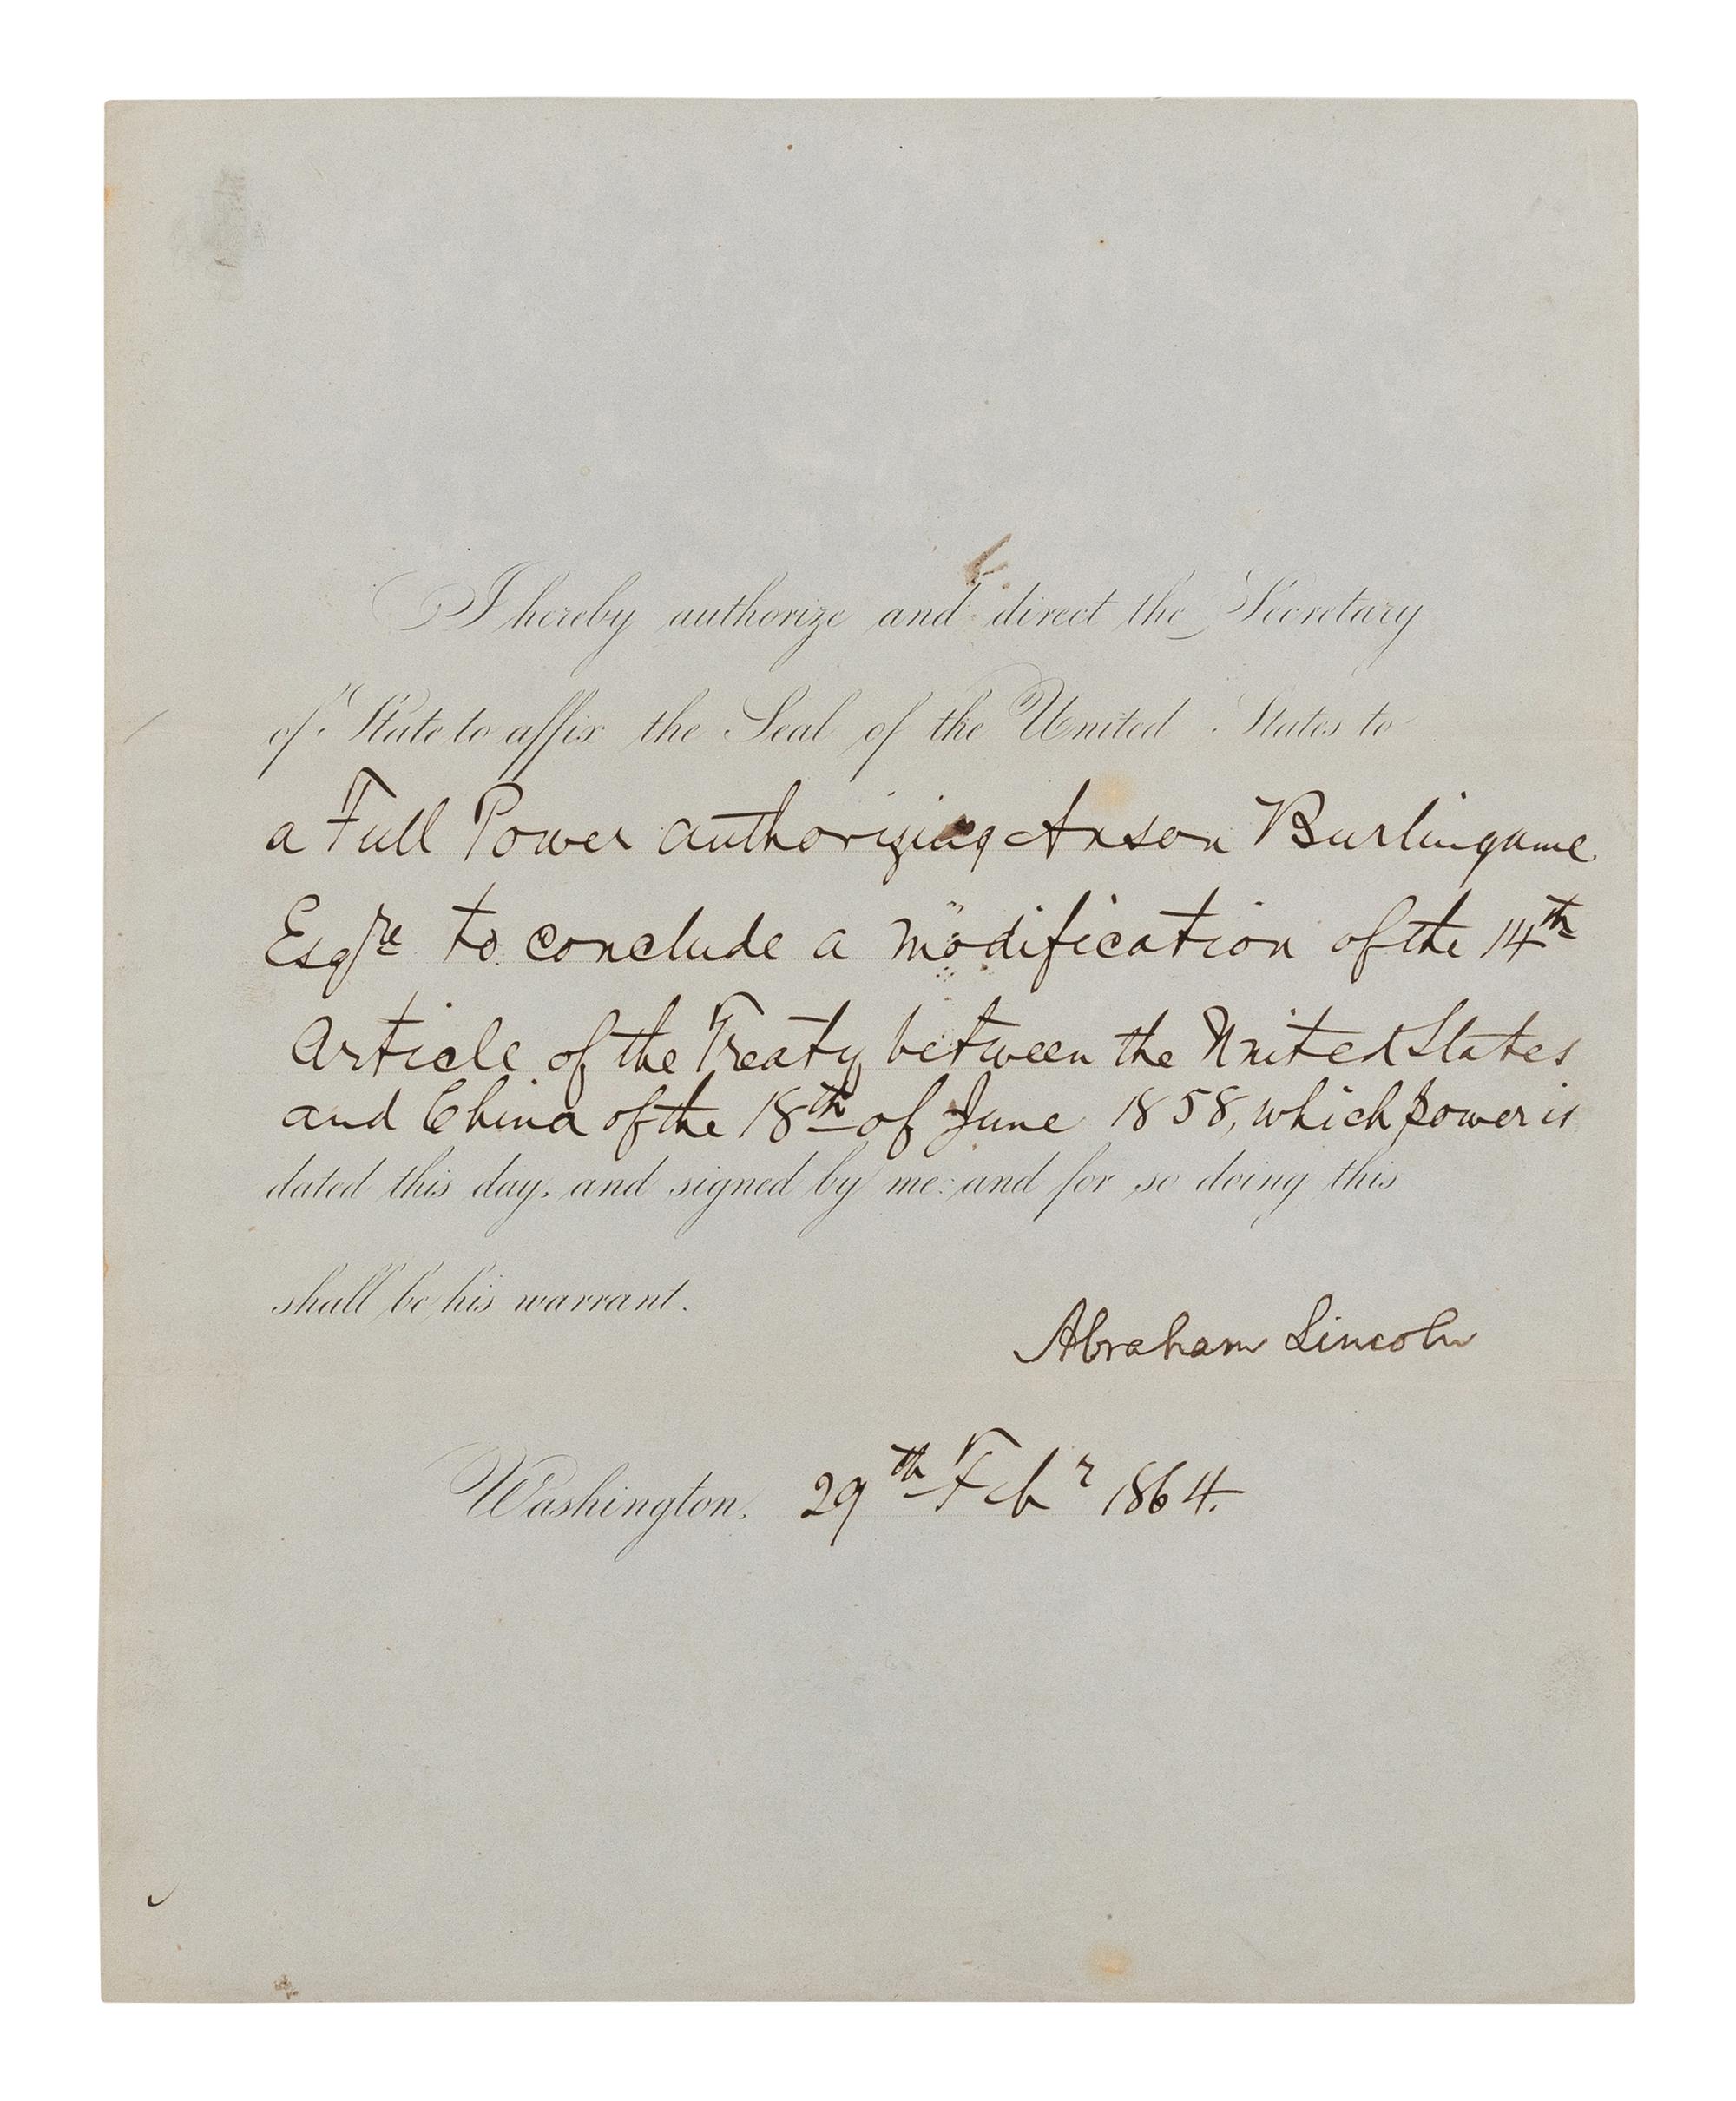 I hereby authorize and direct the Secretary
of State to affix the Seal of the United States to
a Full Power authorizing Anson Burlingame
Esqre to conclude a modification of the 14th
Article of the Treaty between the United States
and China of the 18th of June 1858, which power is
dated this day, and signed by me: and for so doing this
shall be his warrant.
Abraham Lincoln
Washington, 29th Febr 1864.